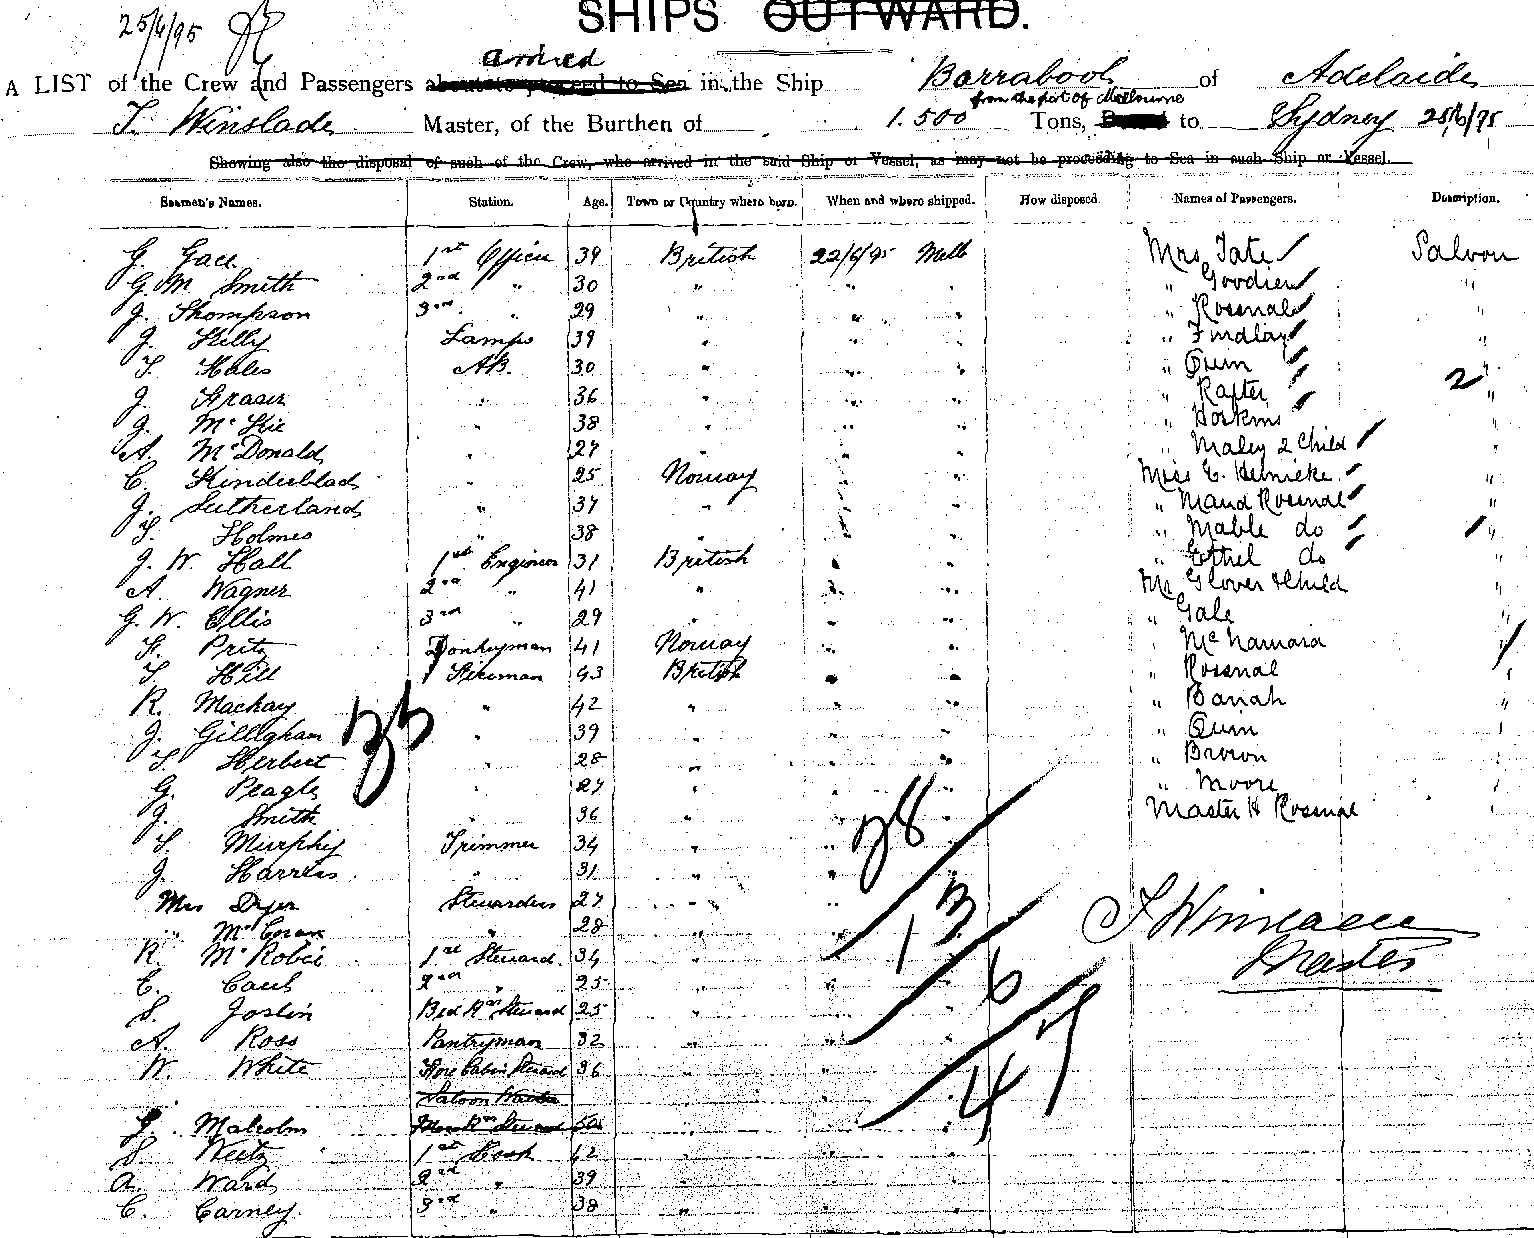 25/6/95
SHIPS OUTWARD.
arrived
A LIST of the Crew and Passengers about to proceed to Sea in the Ship Barrabool of Adelaide
from the port of Melbourne
T. Winslade Master, of the Burthen of 1.500 Tons, to Sydney 25/6/95
Showing also the disposal of such of the Crew, who arrived in the said Ship or Vessel, as may not be proceeding to Sea in such Ship or Vessel.
Seamen's Names. Station. Age. Town or Country where born. When and where shipped. How disposed. Names of Passengers. Description.
G. 1st Officer 39 British 22/6/95 Melb Mrs Tate Saloon
G. M Smith 2nd " 30 " " " " "
J. Thompson 3rd " 29 " " " " Rosenal "
J. Kelly Lamps 39 " " " " Findlay "
T. Hales A.B. 30 " " " " "
J. Fraser " 36 " " " " Rafter 2 "
J. " 38 " " " " "
A. McDonald " 27 " " " Maley & Child "
C. " 25 Norway " " Miss E. "
J. Sutherland " 37 " " " " Maud Rosenal "
T. Holmes " 38 " " " " Mable do "
J. W. Hall 1st Engineer 31 British " " " Ethel do "
A. Wagner 2nd " 41 " " " Mr Glover & Child "
G. W. Ellis 3rd " 29 " " " " Gale "
Donkeyman 41 Norway " " " McNamara "
T. Hill Fireman 43 British " " " Rosenal "
R. Mackay " 42 " " " " "
J. " 39 " " " " "
T. Herbert " 28 " " " " Brown "
G. " 27 " " " " Moore "
J. Smith " 36 " " " Master H Rosenal "
T. Murphy Trimmer 34 " " "
J. Harris " 31 " " "
Mrs Dyer Stewardess 27 " " "
" " 28 " " "
R. 1st Steward 34 " " "
E. 2nd " 25 " " "
S. Joslin Bed Rm Steward 25 " " "
A. Ross Pantryman 32 " " "
W. White Fore Cabin Steward 36 " " "
Saloon Waiter
Malcolm
1st Cook 42 " " "
A. Ward 2nd " 39 " " "
C. Carney 3rd " 38 " " "
38
13
6
47
T Winslade
Master